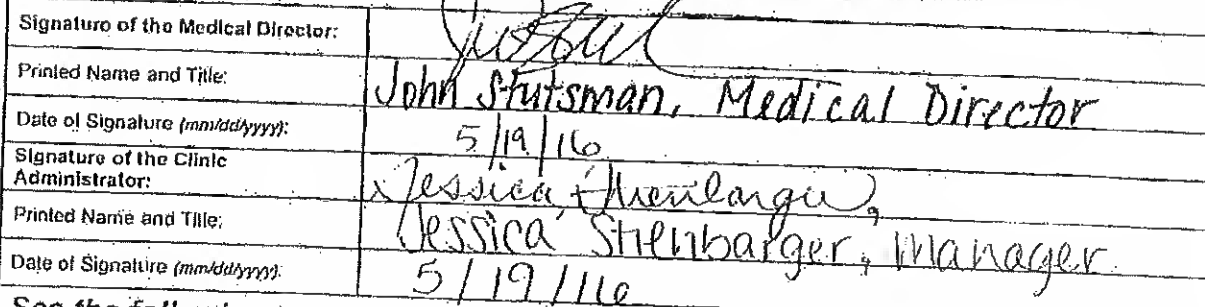 Signature of the Medical Director:
Printed Name and Title: John Stutsman, Medical Director
Date of Signature (mm/dd/yyyy): 5/19/16
Signature of the Clinic Administrator: Jessica
Printed Name and Title: Jessica Stienbarger, Manager
Date of Signature (mm/dd/yyyy): 5/19/16
See the